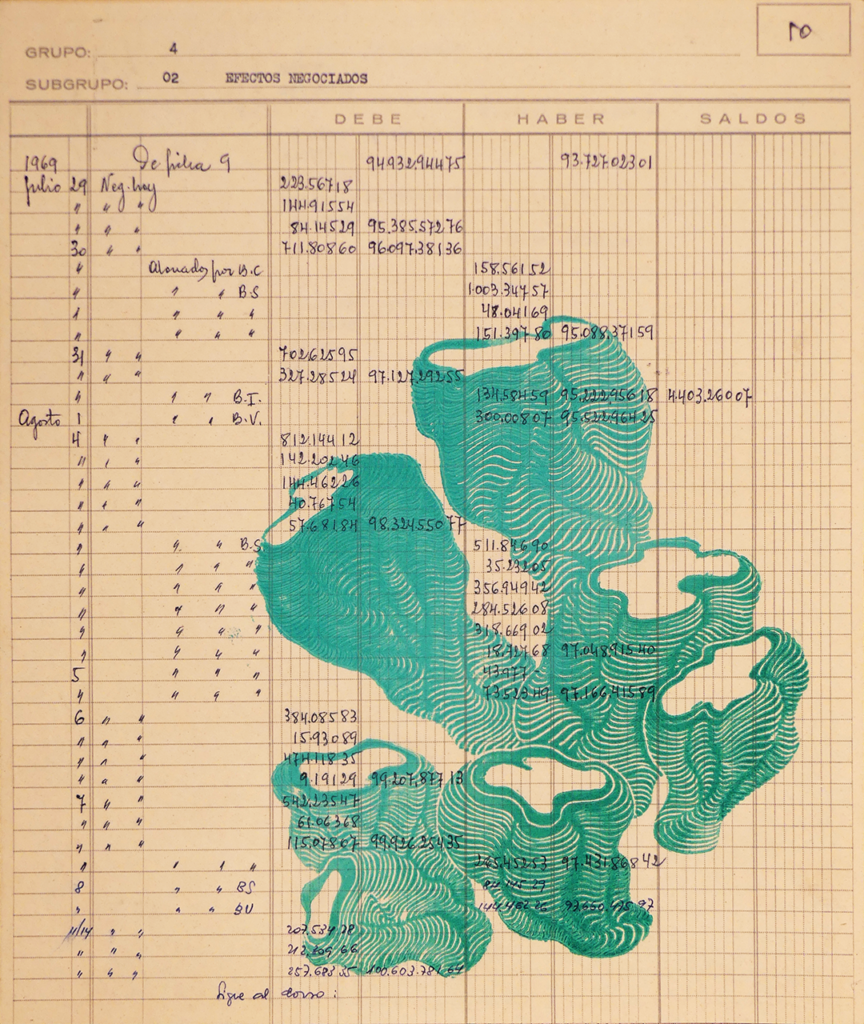 10
GRUPO: 4
SUBGRUPO: 02 EFECTOS NEGOCIADOS
DEBE HABER SALDOS
1969 De 9 94932.94475 93.727.02301
Julio 29 Neg. hoy 223.56718
" " " 144.91554
" " " 84.14529 95.385.57276
30 " " 711.80860 96097.38136
" Abonados por B.C 158.56152
" " " B.S 1.003.34757
" " " " 48.04169
" " " " 151.39780 95.088.37159
31 " " 702.62595
" " " 327.28524 97.127.29255
" " " B.I. 134.58459 95.222.95618 4.403.26007
Agosto 1 " " B.V. 300.00807 95.522.96425
4 " " 812.14412
" " " 142.20246
" " " 144.46226
" " " 40.76754
" " " 57.68184 98.324.55077
" " " B.S 511.84690
" " " " 35.23205
" " " " 356.94942
" " " " 284.52608
" " " " 318.66902
" " " " 97.048.91540
5 " " "
" " " " 97.166.41589
6 " " 384.08583
" " " 15.93089
" " " 474.11835
" " " 9.19129 99.207.87713
7 " " 542.23547
" " " 61.06368
" " " 115.07807 99.926.25435
" " " " 265.45253 97.431.86842
8 " " BS
" " " BV
11/14 " " 207.534.78
" " "
" " " 257.683.35 100.603.781.64
Sigue al dorso: